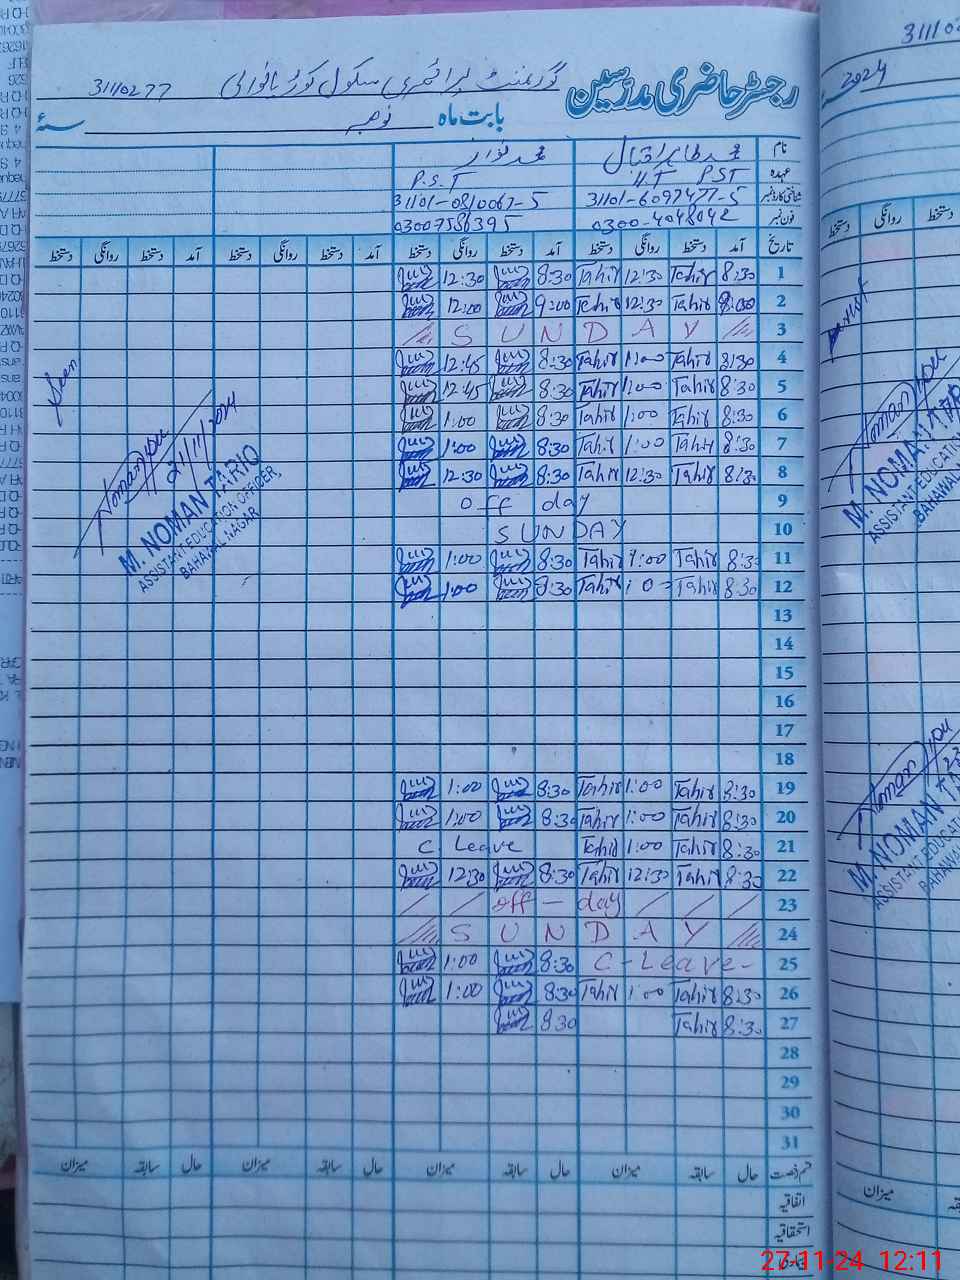 رجسٹر حاضری مدرسین گورنمنٹ پرائمری سکول 31110277
بابت ماہ نومبر سنہ
نام محمد طاہر اقبال محمد نواز
عہدہ H.T PST P.S.T
شناختی کارڈ نمبر 31101-6097477-5 31101-0810067-5
فون نمبر 0300-4048042 03007586395
تاریخ آمد دستخط روانگی دستخط آمد دستخط روانگی دستخط آمد دستخط روانگی دستخط آمد دستخط روانگی دستخط
1 8:30 Tahir 12:30 Tahir 8:30 12:30
2 8:00 Tahir 12:30 Tahir 9:00 12:00
3 SUNDAY
4 8:30 Tahir 1:00 Tahir 8:30 12:45
5 8:30 Tahir 1:00 Tahir 8:30 12:45
6 8:30 Tahir 1:00 Tahir 8:30 1:00
7 8:30 Tahir 1:00 Tahir 8:30 1:00
8 8:30 Tahir 12:30 Tahir 8:30 12:30
9 off day
10 SUNDAY
11 8:30 Tahir 1:00 Tahir 8:30 1:00
12 8:30 Tahir 1:0 Tahir 8:30 1:00
13
14
15
16
17
18
19 8:30 Tahir 1:00 Tahir 8:30 1:00
20 8:30 Tahir 1:00 Tahir 8:30 1:00
21 8:30 Tahir 1:00 Tahir C. Leave
22 8:30 Tahir 12:30 Tahir 8:30 12:30
23 off - day
24 SUNDAY
25 C - Leave - 8:30 1:00
26 8:30 Tahir 1:00 Tahir 8:30 1:00
27 8:30 Tahir 8:30
28
29
30
31
قسم رخصت حال سابقہ میزان حال سابقہ میزان حال سابقہ میزان حال سابقہ میزان
اتفاقیہ
استحقاقیہ
Seen
21/11/2024
M. NOMAN TARIQ
ASSISTANT EDUCATION OFFICER
BAHAWAL NAGAR
2024
میزان
27-11-24 12:11